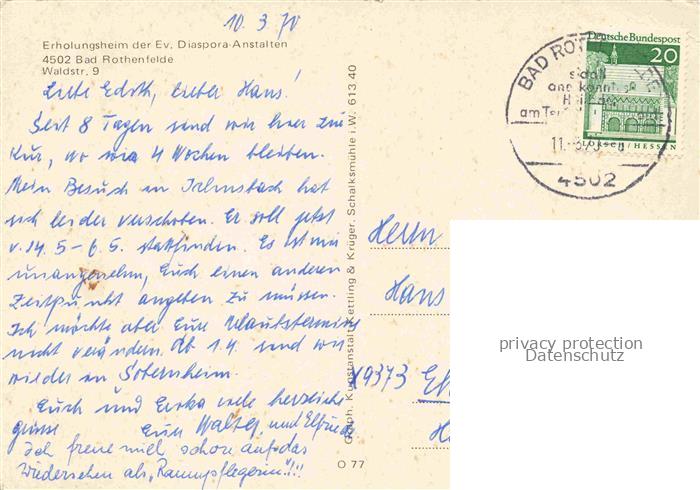 10.3.70
Erholungsheim der Ev. Diaspora-Anstalten
4502 Bad Rothenfelde
Waldstr. 9
Liebe Edith, lieber Hans!
Seit 8 Tagen sind wir hier zur
Kur, wo wir 4 Wochen bleiben.
Mein Besuch in hat
sich leider verschoben. Er soll jetzt
v. 14.5 - 6.5. stattfinden. Es ist mir
unangenehm, Euch einen anderen
Zeitpunkt angeben zu müssen.
Ich möchte aber Eure Urlaubstermine
nicht verändern. Ab 1.4. sind wir
wieder in Sobernheim.
Euch und Erika viele herzliche
Grüsse Eure Walter und Elfriede
Ich freue mich schon auf das
Wiedersehen als "Raumpflegerin"!!
Graph. Kunstanstalt Kettling & Krüger, Schalksmühle i.W. 613 40
O 77
Deutsche Bundespost
20
HESSEN
BAD ROT
am Te
11.
4502
Herrn
Hans
X9373
privacy protection
Datenschutz